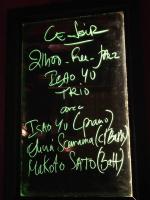 CE Soir
21h00 - Free - Jazz
ISAO YU
TRIO
avec
ISAO YU (piano)
(C/Basse)
MAKOTO SATO (batt)